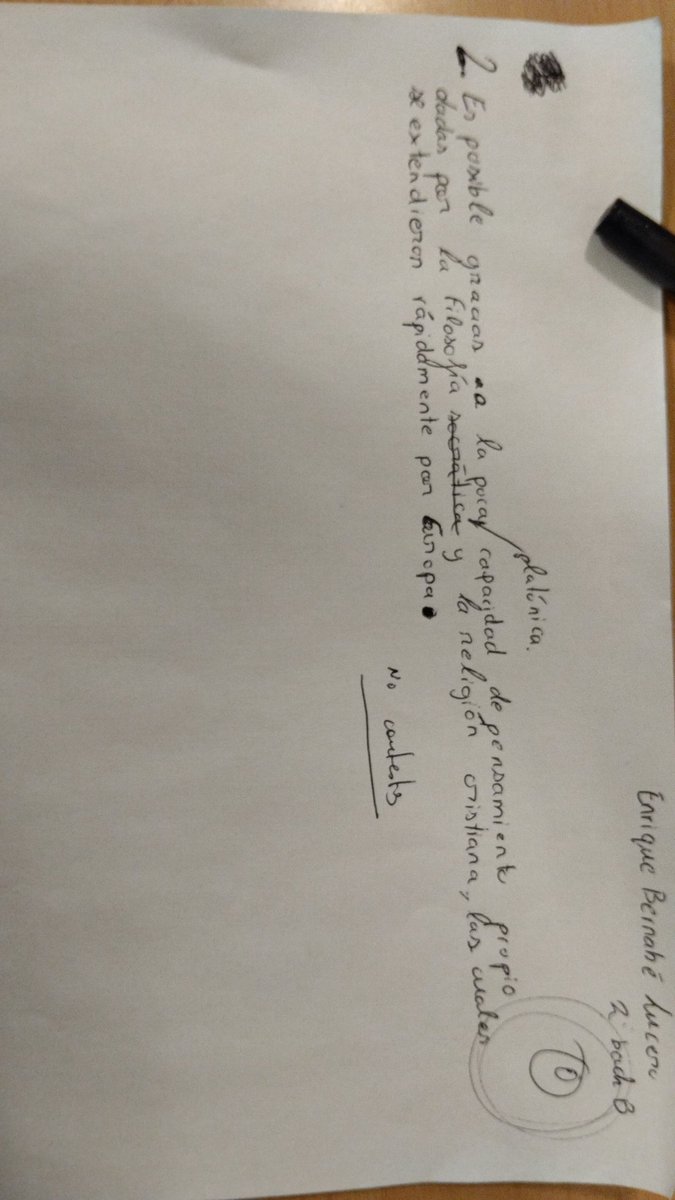 Enrique Bernabé Lucera
2º bach B
TO
platónica.
2- Es posible gracias a la poca capacidad de pensamiento propio
dadas por la filosofía socrática y la religión cristiana, las cuales
se extendieron rápidamente por Europa.
No contests